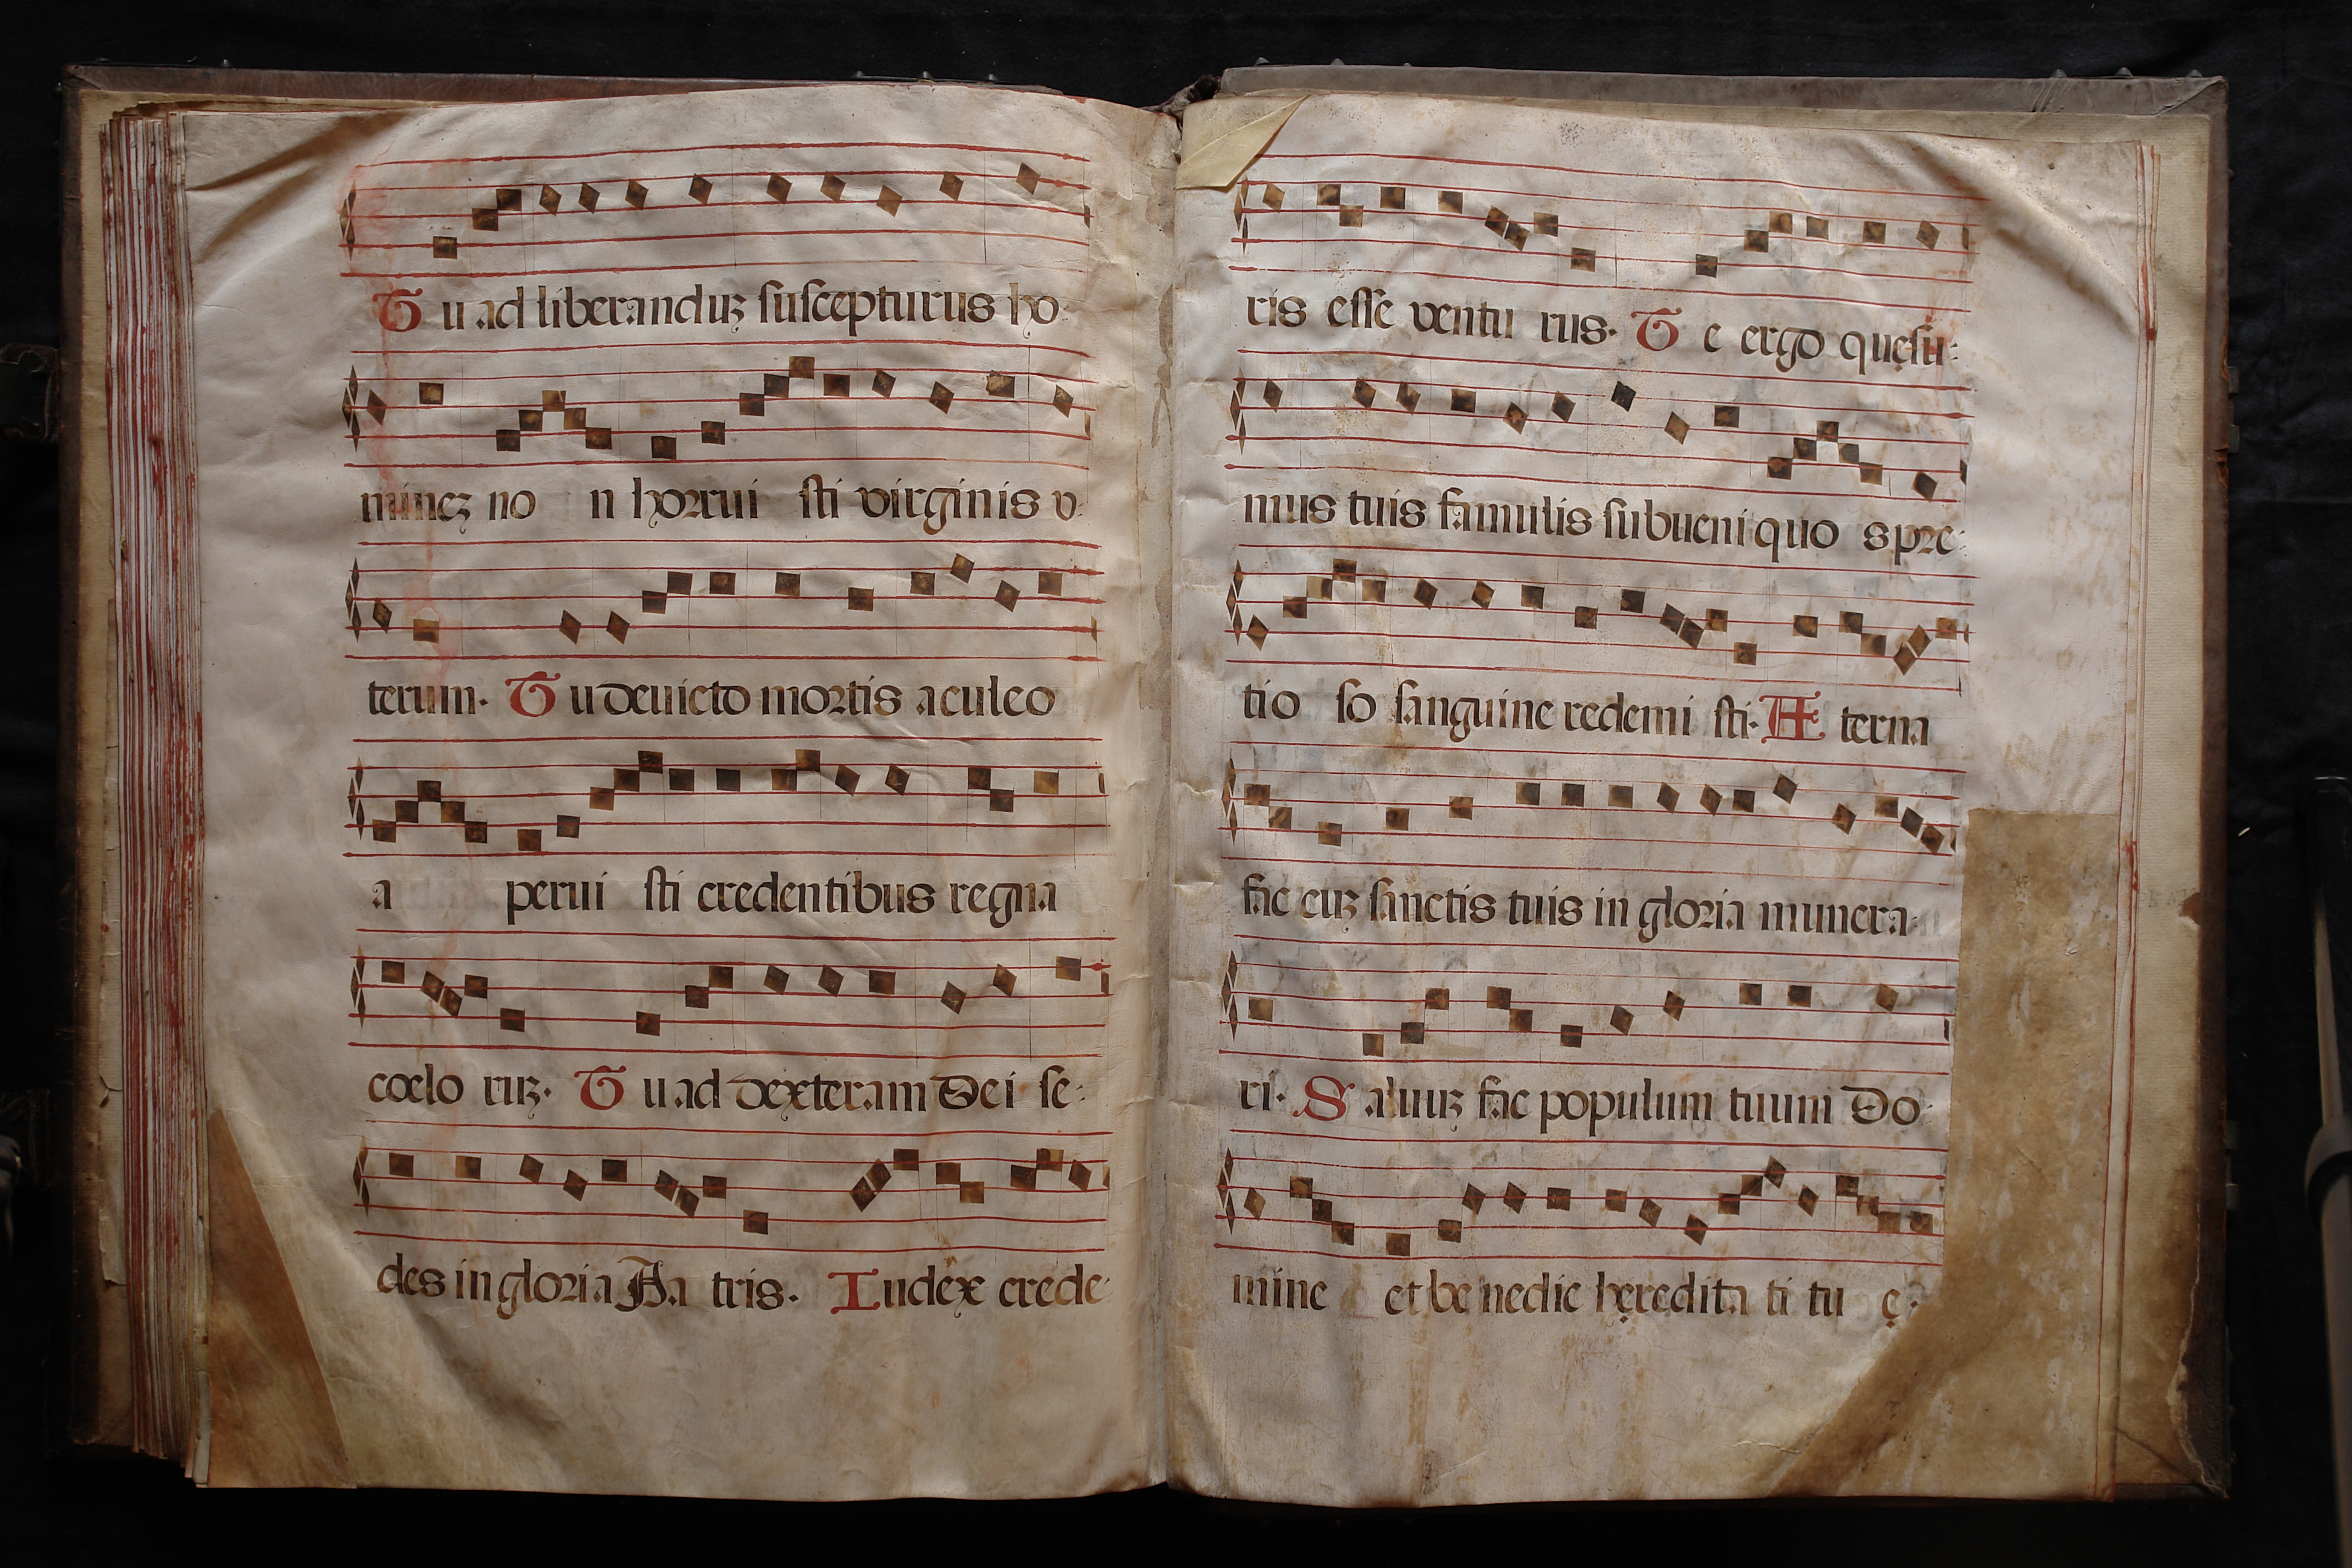 Tu ad liberanduꝫ ſuſcepturus ho-
mineꝫ no n horrui ſti virginis v-
terum. Tu devicto mortis aculeo
a perui ſti credentibus regna
cœlo ruꝫ. Tu ad dexteram Dei ſe-
des in gloria Pa tris. Iudex crede-
ris eſſe ventu rus. Te ergo quęſu-
mus tuis famulis ſubueni quo s pre-
tio ſo ſanguine redemi ſti. Æ terna
fac cuꝫ ſanctis tuis in gloria munera-
ri. S aluuꝫ fac populum tuum Do-
mine et be nedic hęredita ti tu ę.